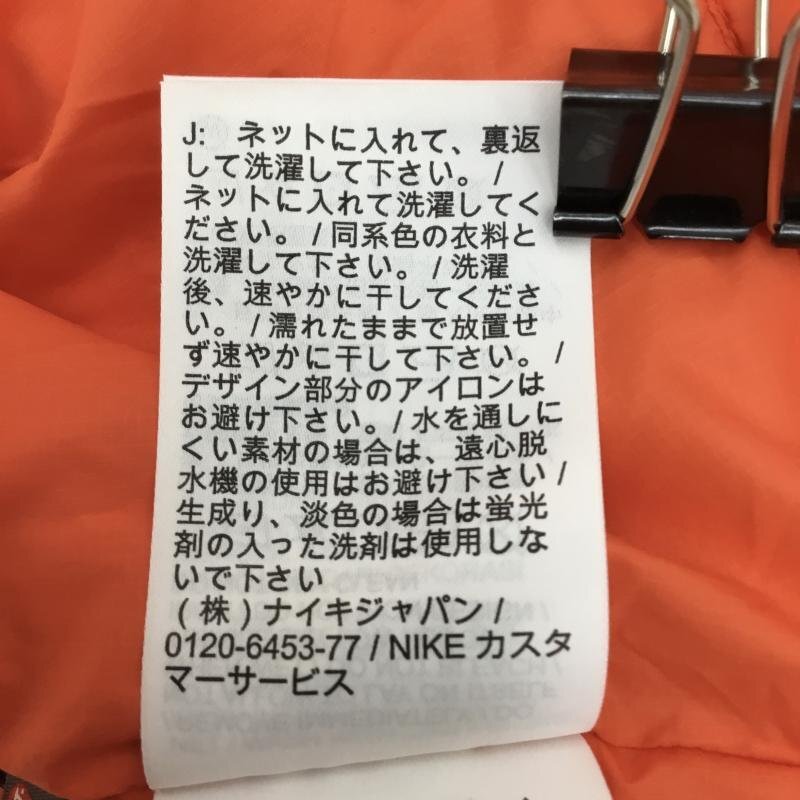 J: ネットに入れて、裏返
して洗濯して下さい。/
ネットに入れて洗濯してく
ださい。/ 同系色の衣料と
洗濯して下さい。/ 洗濯
後、速やかに干してくださ
い。/ 濡れたままで放置せ
ず速やかに干して下さい。/
デザイン部分のアイロンは
お避け下さい。/ 水を通しに
くい素材の場合は、遠心脱
水機の使用はお避け下さい /
生成り、淡色の場合は蛍光
剤の入った洗剤は使用しな
いで下さい
(株)ナイキジャパン /
0120-6453-77 / NIKE カスタ
マーサービス